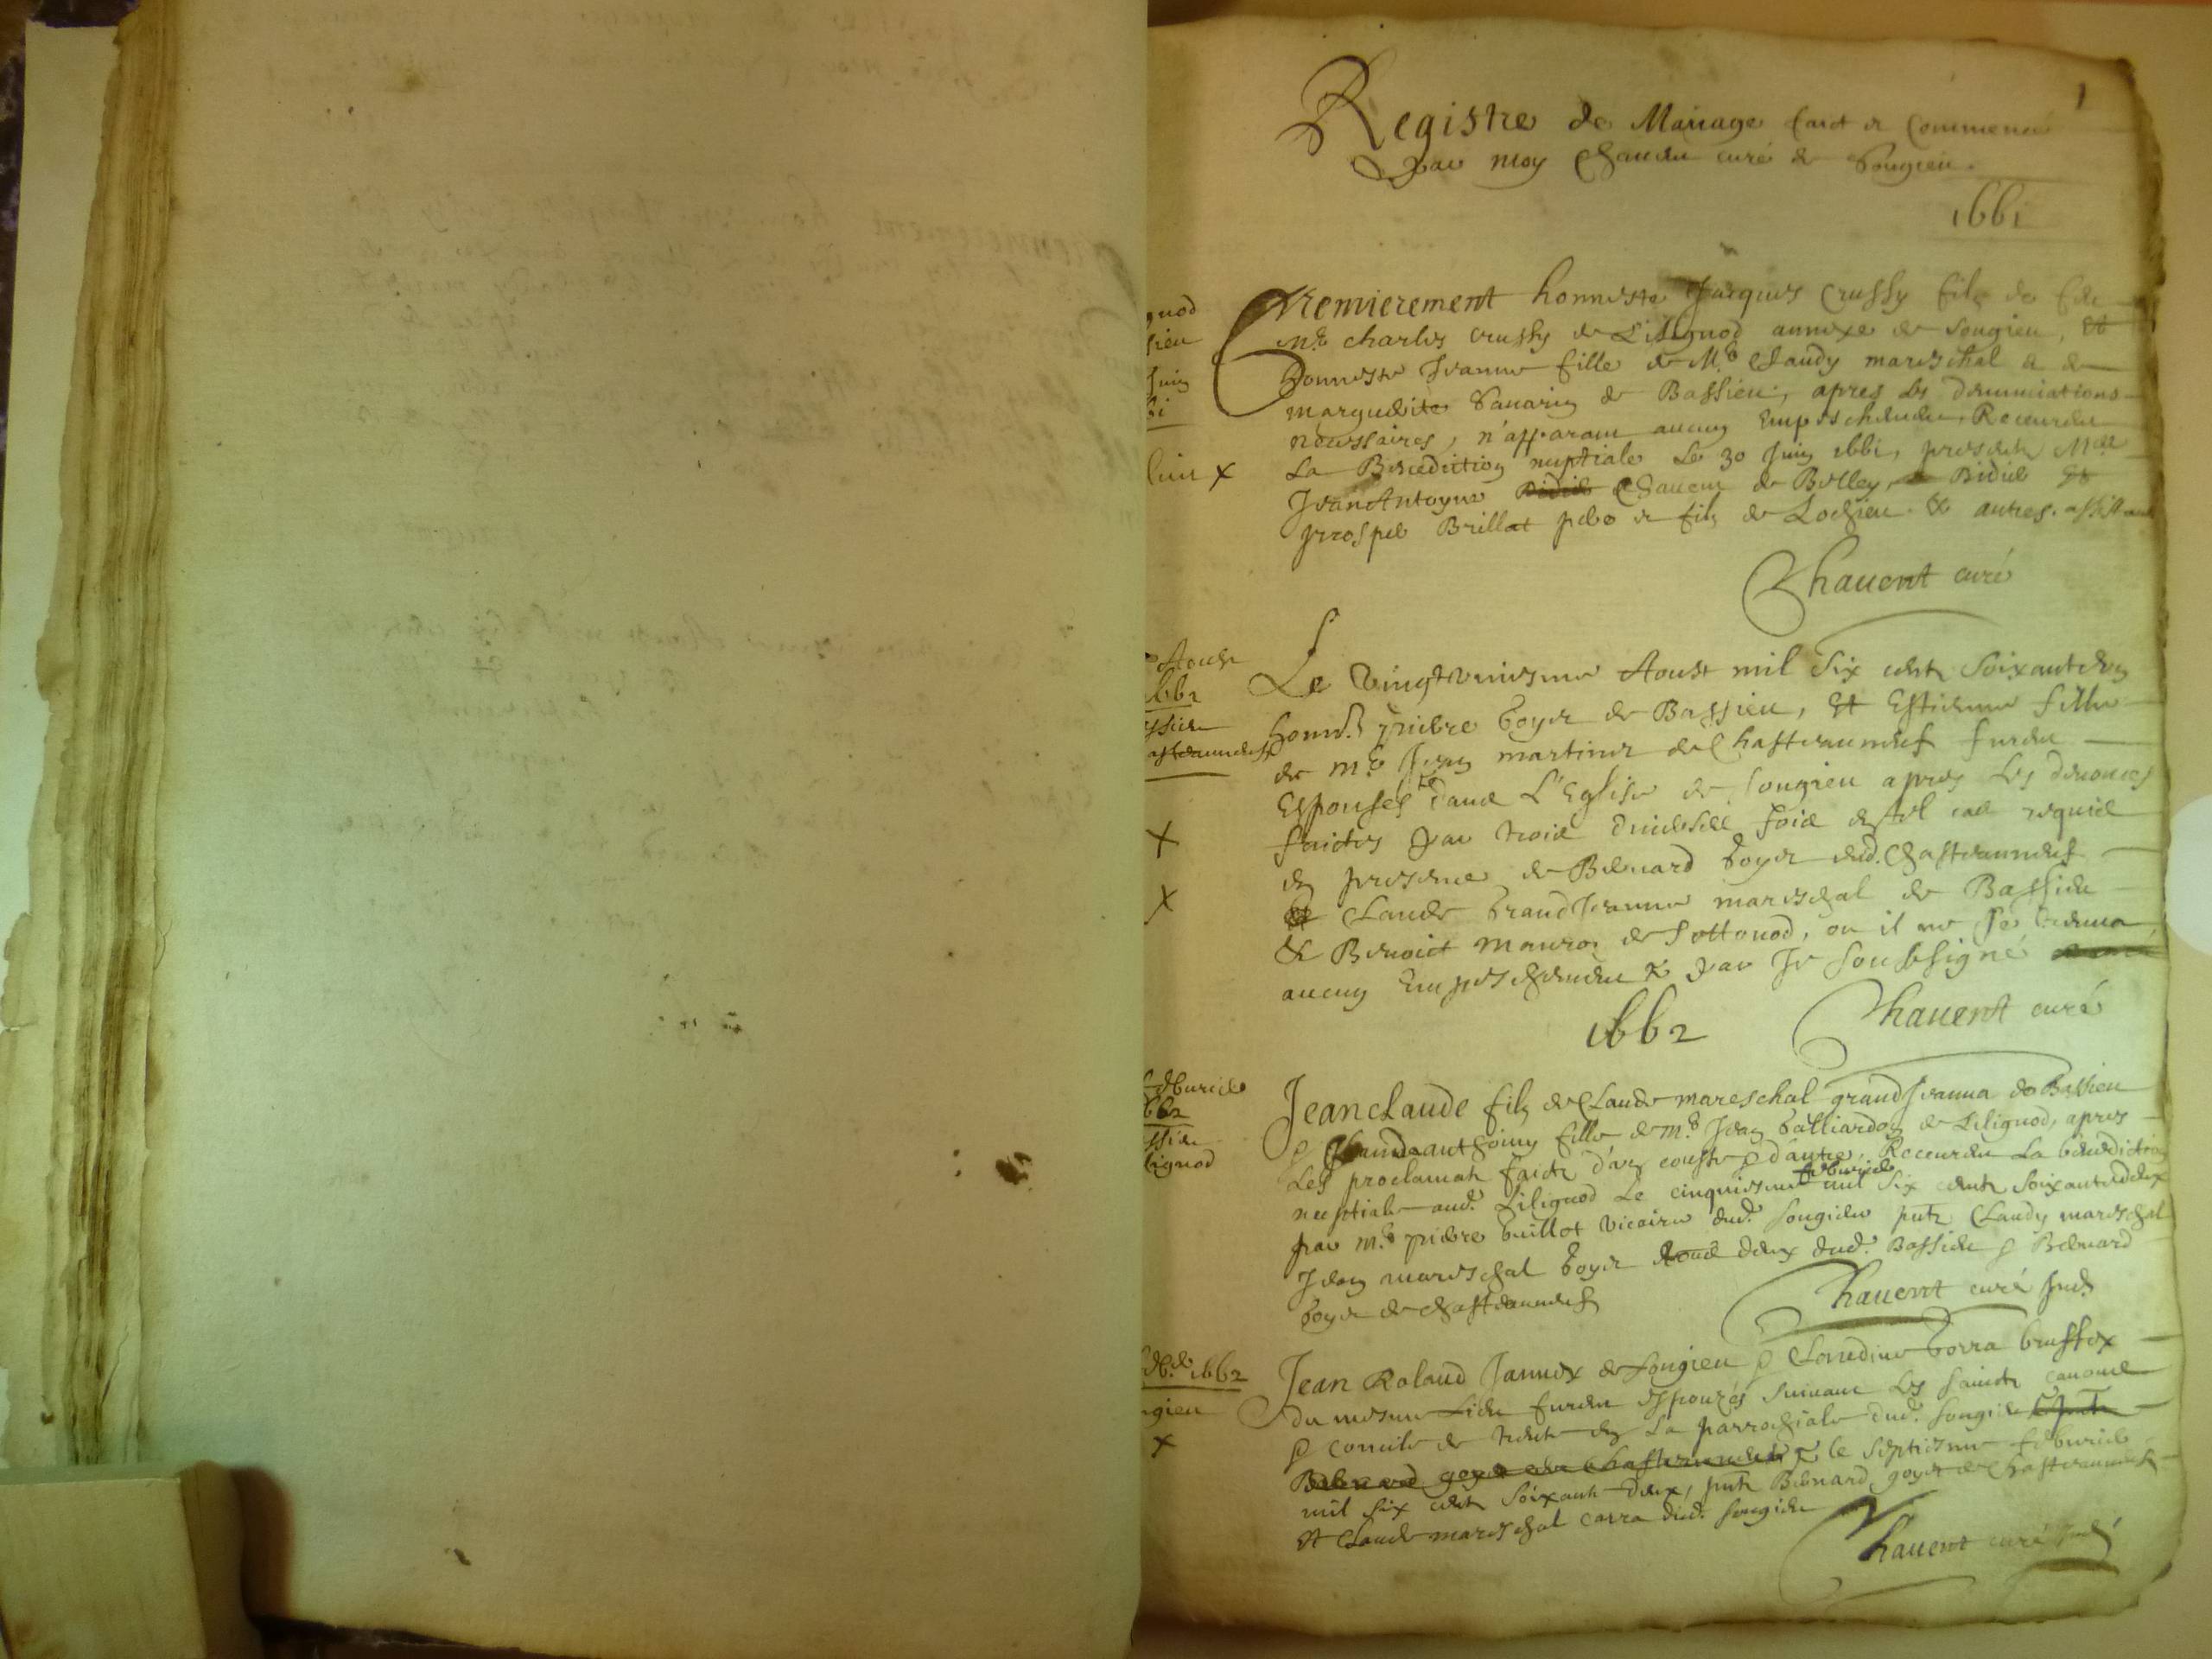 1
Registre de Mariage faict et Commencé
par moy Chauent curé de Songieu.
1661
Premierement honneste Jacques Crussy filz de feu
Me charles crussy de Lilignod annexe de Songieu, Et
honneste Jeanne fille de Me Claudy mareschal & de
marguerite Sauarin de Bassieu, apres les denunciations
necessaires, n'apparant aucung Empeschement, Receurent
La Benediction nuptiale Le 30 Juin 1661, presents
Jean Antoyne Chauent de Belley, Didier Et
prosper Brillat pere et filz de Lochieu & autres. assistans
Chauent curé
gnod
sieu
Juin
61
x
Le Vingt uniesme Aoust mil Six cents Soixante
pierre goyet de Bassieu, Et Estienne fille
de Me Jean martinet de Chasteauneuf furent
Espouses dans L'Eglise de Songieu apres Les denonces
faictes par trois diuerses fois est cas requis
En presence de Bernard goyet dud. Chasteauneuf
Claude grandJeanne mareschal de Bassieu
& Benoict de Sottonod, ou il ne se treuua
aucung Empeschement & par Je soubsigné
Chauent curé
Aoust
1661
ssieu
asteauneuf
x
x
1662
Jeanclaude filz de Claude mareschal grandJeanna de Bassieu
fille de Me Jean de Lilignod, apres
Les proclamats faicts d'un couste & d'autre, Receurent La benediction
nuptiale aud. Lilignod Le cinquiesme feburier mil Six cents Soixante deux
par Me pierre buillot vicaire dud. Songieu pnts Claudy mareschal
Jean mareschal goyet tous deux dud. Bassieu & Bernard
goyet de chasteauneuf
Chauent curé
feburier
662
ssieu
lignod
Jean Roland Jannex de Songieu & Claudine borra
du mesme Lieu furent espouzés suiuant Les saincts canons
& concile de trente En La parrochiale dud. Songieu
Bernard goyet de Chasteauneuf & le septiesme feburier
mil six cents soixante deux, pnts Bernard goyet de Chasteauneuf
Et Claude mareschal carra dud. Songieu
Chauent curé
1662
ngieu
x